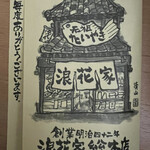 毎度ありがとうございます。
元祖
たいやき
浪花家
創業明治四十二年
浪花家総本店